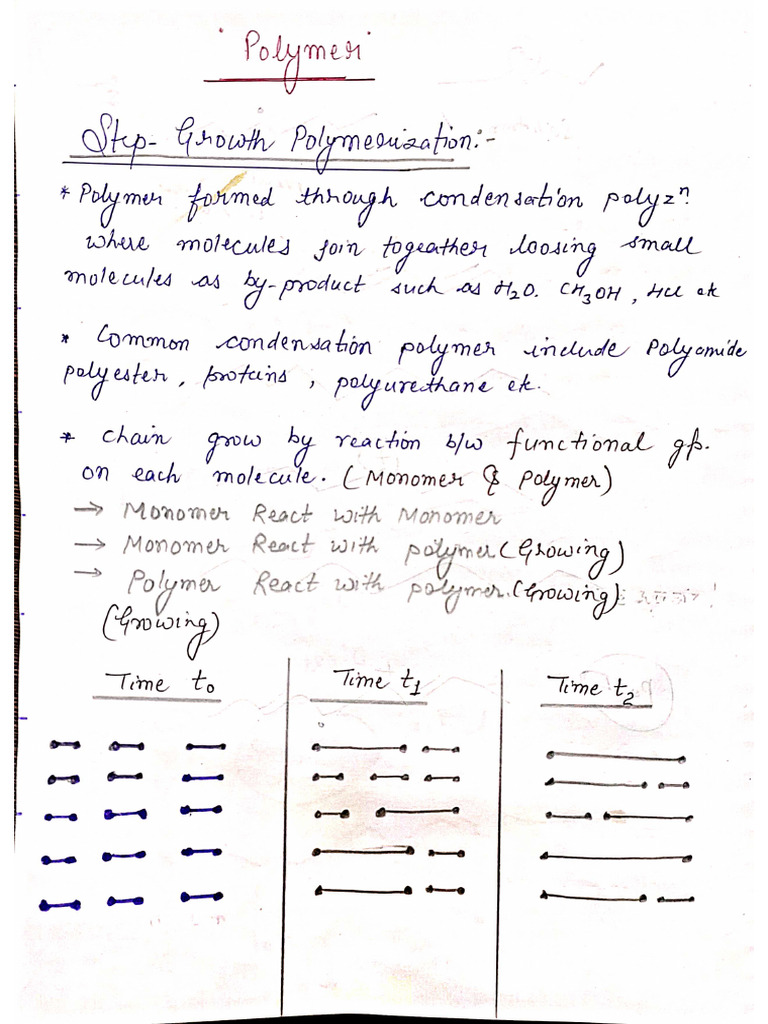 "Polymer"
Step-Growth Polymerization:-
* Polymer formed through condensation polyzⁿ.
where molecules join togeather loosing small
molecules as by-product such as H₂O. CH₃OH, HCl etc
* Common condensation polymer include Polyamide
polyester, protins, polyurethane etc.
* Chain grow by reaction b/w functional gp.
on each molecule. (Monomer & Polymer)
→ Monomer React with Monomer
→ Monomer React with polymer (Growing)
→ Polymer React with polymer. (Growing)
(Growing)
Time t₀ Time t₁ Time t₂